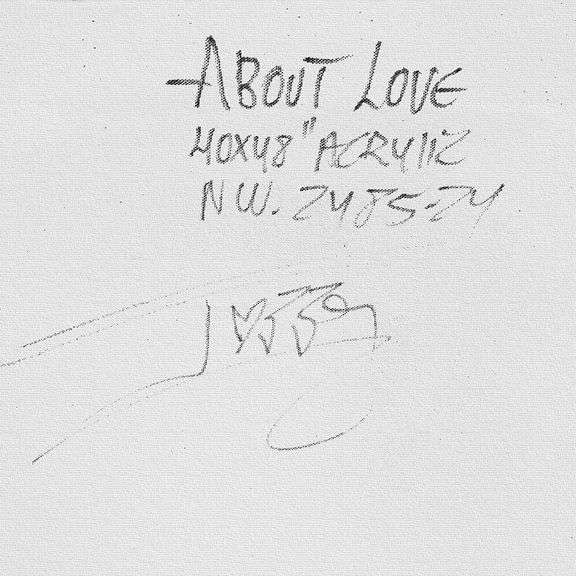 ABOUT LOVE
40X48" ACRYLIC
NW. 2485-24